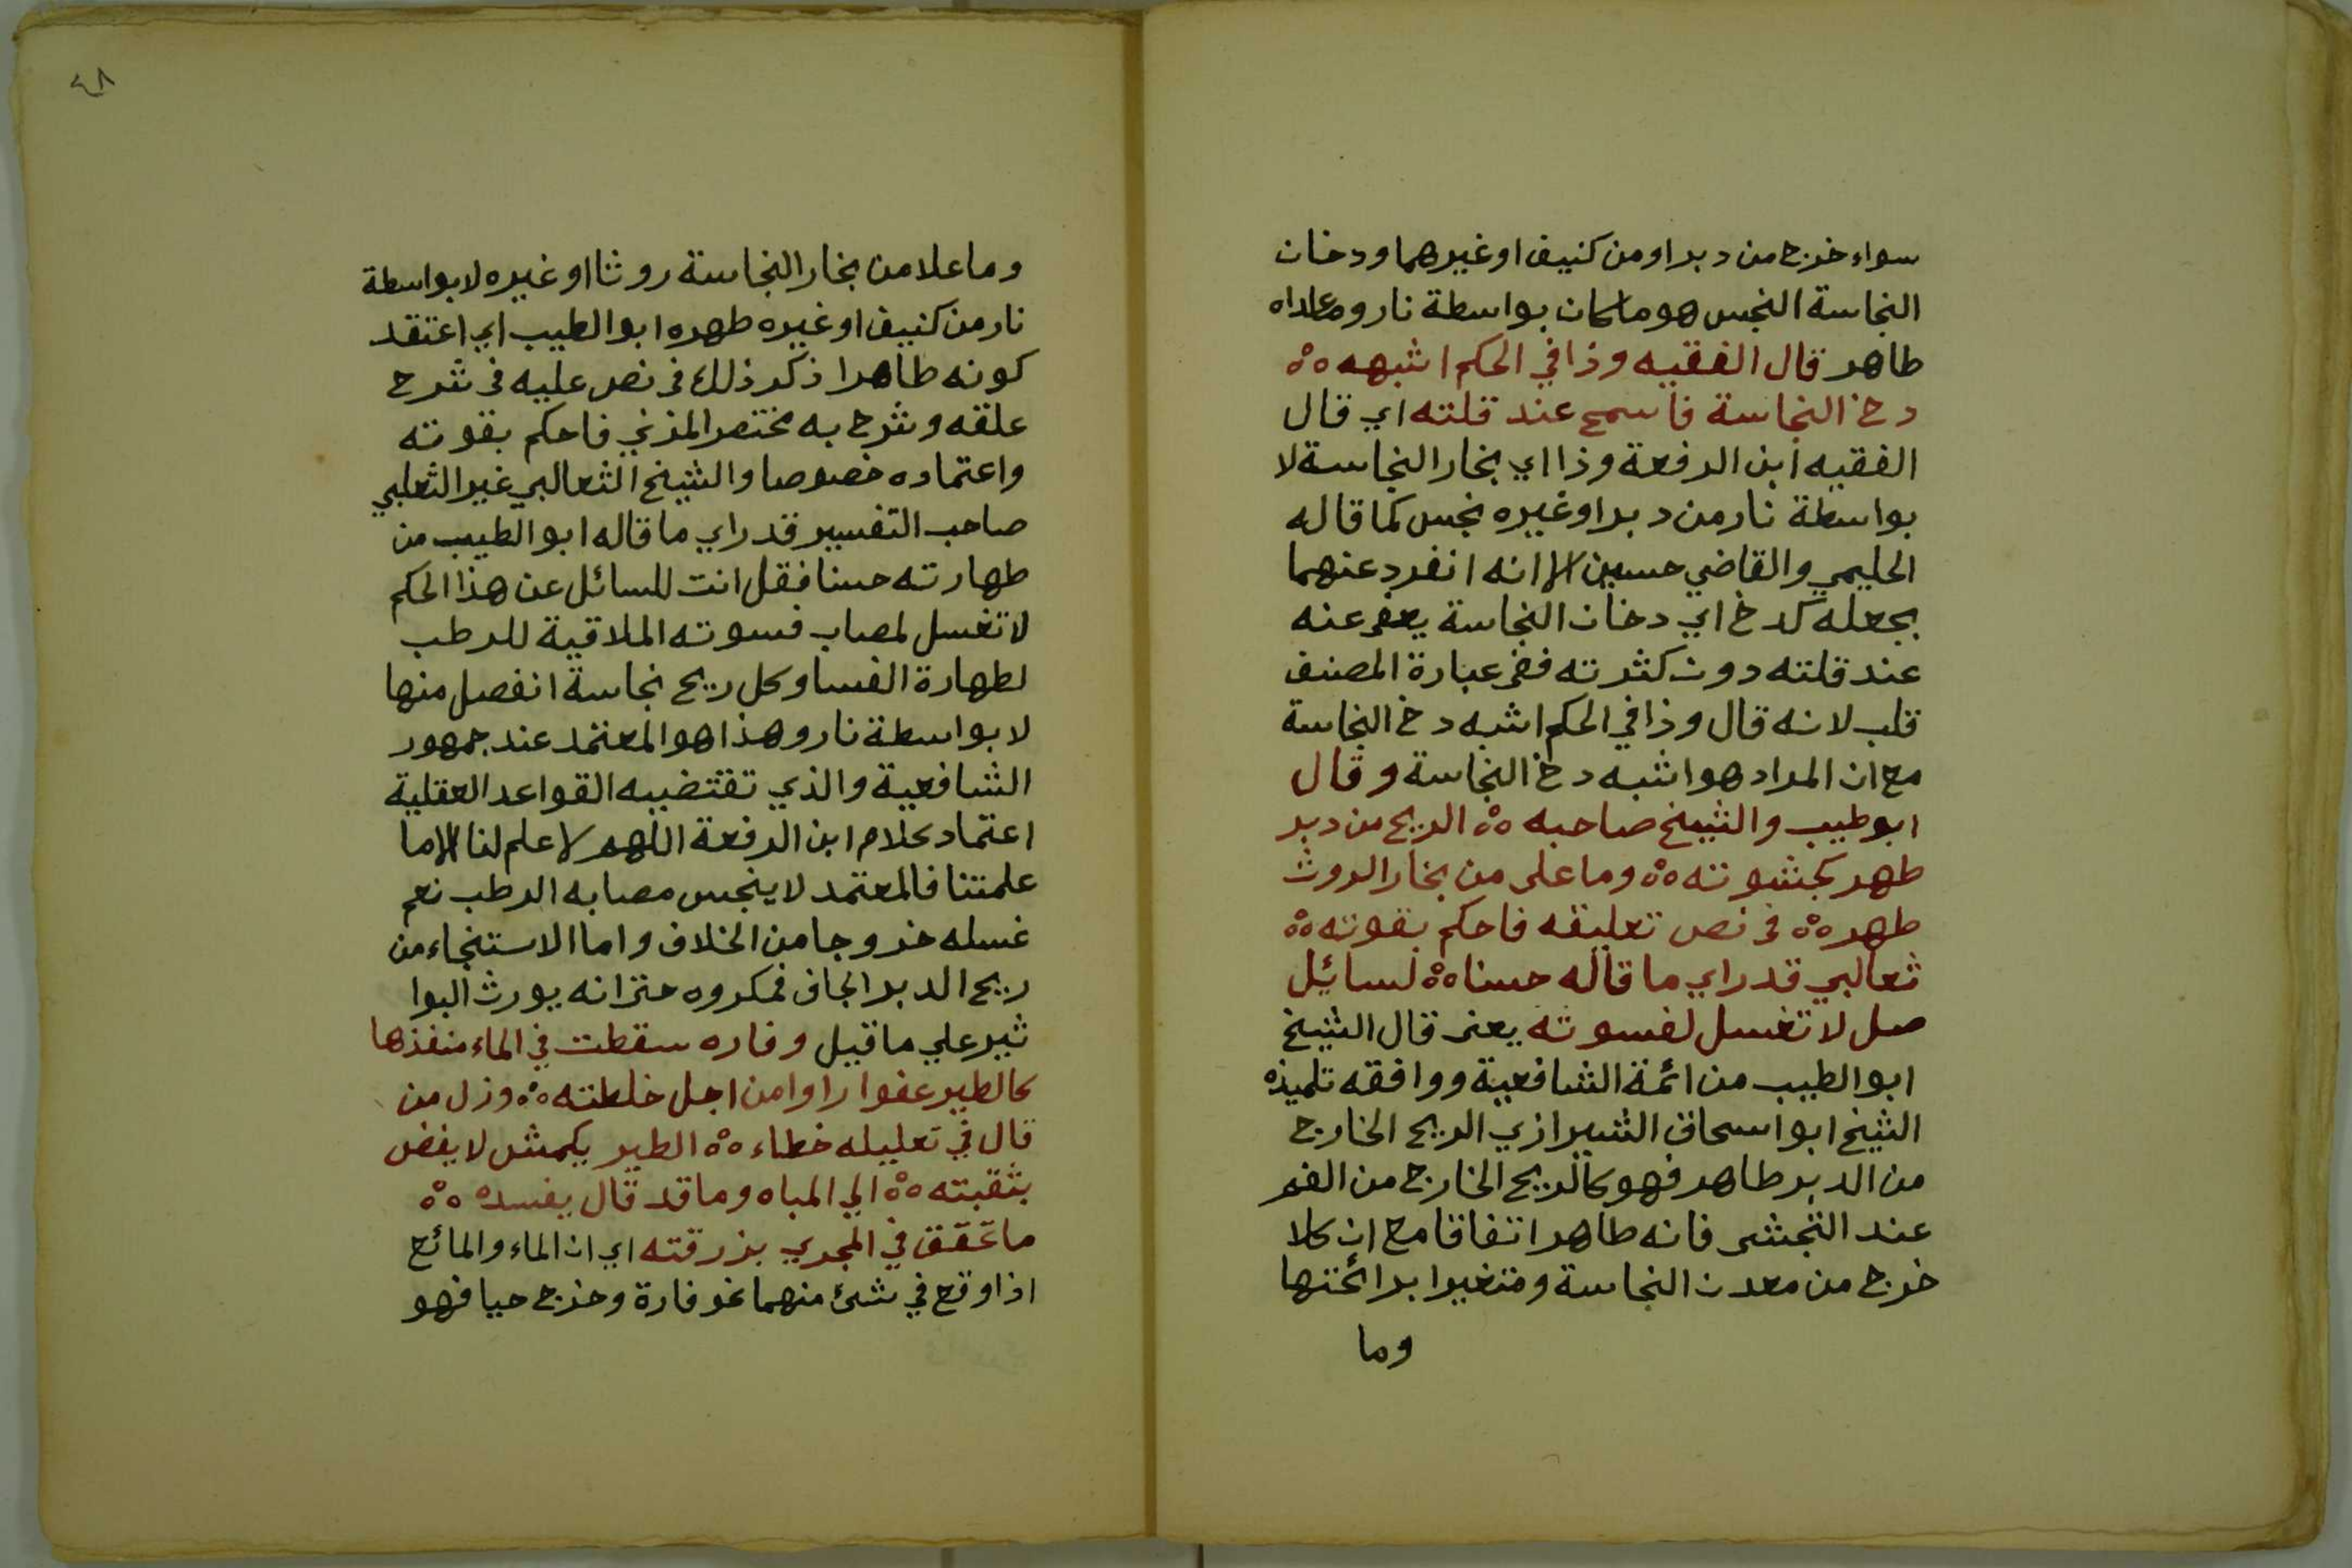 سواء خرج من دبر او من كنيف او غيرهما ودخان
النجاسة النجس هو ما كان بواسطة نار وماعداه
طاهر قال الفقيه وذا في الحكم اشبهه ٥٥
دخ النجاسة فاسمح عند قلته اي قال
الفقيه ابن الرفعة وذا اي بخار النجاسة لا
بواسطة نار من دبر او غيره نجس كما قاله
الحليمي والقاضي حسين الا انه انفرد عنهما
بجعله كدخ اي دخان النجاسة يعفى عنه
عند قلته دون كثرته ففى عبارة المصنف
قلب لانه قال وذا في الحكم اشبه دخ النجاسة
مع ان المراد هو اشبه دخ النجاسة وقال
ابو طيب والشيخ صاحبه ٥٥ الريح من دبر
طهر كجشوته ٥٥ وما على من بخار الروث
طهر ٥٥ في نص تعليقه فاحكم بقوته ٥٥
ثعالبي قد راي ما قاله حسنا ٥٥ لسائيل
صل لا تغسل لفسوته يعنى قال الشيخ
ابو الطيب من ائمة الشافعية ووافقه تلميذه
الشيخ ابو اسحاق الشيرازي الريح الخارج
من الدبر طاهر فهو كالريح الخارج من الفم
عند التجشى فانه طاهر اتفاقا مع ان كلا
خرج من معدن النجاسة ومتغيرا برائحتها
وما
٤٨
وما علا من بخار النجاسة روثا او غيره لا بواسطة
نار من كنيف او غيره طهره ابو الطيب اي اعتقد
كونه طاهرا ذكر ذلك فى نص عليه فى شرح
علقه وشرح به مختصر المزني فاحكم بقوته
واعتماده خصوصا والشيخ الثعالبي غير الثعلبي
صاحب التفسير قد راي ما قاله ابو الطيب من
طهارته حسنا فقل انت للسائل عن هذا الحكم
لا تغسل لمصاب فسوته الملاقية للرطب
لطهارة الفسا وكل ريح نجاسة انفصل منها
لا بواسطة نار وهذا هو المعتمد عند جمهور
الشافعية والذي تقتضيه القواعد العقلية
اعتماد كلام ابن الرفعة اللهم لا علم لنا الا ما
علمتنا فالمعتمد لا ينجس مصابه الرطب نعم
غسله خروجا من الخلاف واما الاستنجاء من
ريح الدبر الجاف فمكروه حتى انه يورث البوا
ثير علي ما قيل وفاره سقطت في الماء منفذها
كالطير عفوا راوا من اجل خلطته ٥٥ وزل من
قال في تعليله خطاء ٥٥ الطير يكمش لا يفض
بثقبته ٥٥ الي المباه وما قد قال يفسده ٥٥
ما تحقق في المجري بزرقته اي ان الماء والمائع
اذا وقع في شئ منهما نحو فارة وخرج حيا فهو